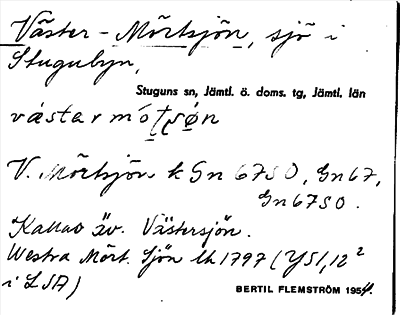 Väster-Mörtsjön, sjö i
Stugubyn,
Stuguns sn, Jämtl. ö. doms. tg, Jämtl. län
V. Mörtsjön k Gn 67SO, Gn67,
Gn67SO.
Kallas äv. Västersjön.
Westra Mört. Sjön lk 1797 (Y51,12²
i LSA)
BERTIL FLEMSTRÖM 1954.